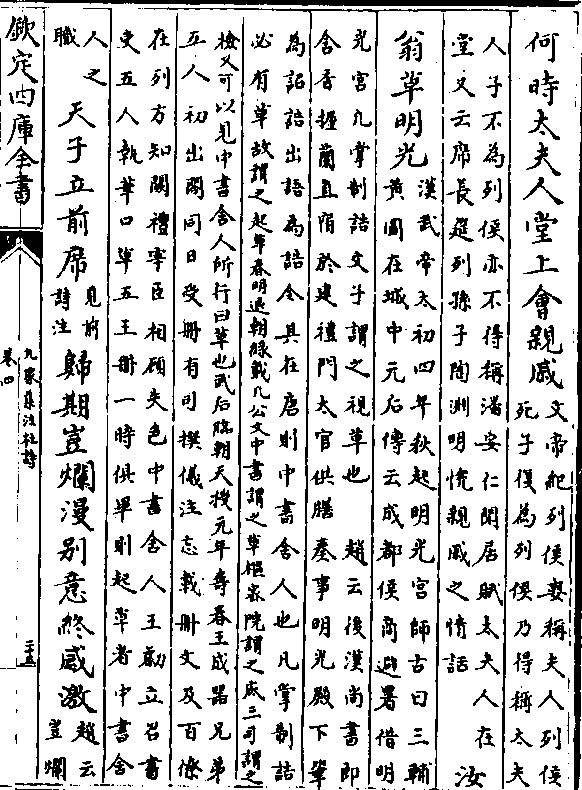 何時太夫人堂上會親戚
文帝紀列侯妻稱夫人列侯
死子復為列侯乃得稱太夫
人子不為列侯亦不得稱潘安仁閒居賦太夫人在
堂又云席長筵列孫子陶淵明悅親戚之情話 汝
翁草明光
漢武帝太初四年秋起明光宮師古曰三輔
黃圖在城中元后傳云成都侯商避暑借明
光宮凡掌制誥文字謂之視草也 趙云後漢尚書郎
含香握蘭直宿於建禮門太官供膳奏事明光殿下筆
為詔誥出語為誥令其在唐則中書舍人也凡掌制誥
必有草故謂之起草春明退朝錄載凡公文中書謂之草樞密院謂之底三司謂之
檢又可以見中書舍人所行曰草也武后臨朝天授元年壽春王成器兄弟
五人初出閤同日受冊有司撰儀注忘載冊文及百僚
在列方知闕禮宰臣相顧失色中書舍人王勮立召書
吏五人執筆口草五王冊一時俱畢則起草者中書舍
人之
職
天子立前席
見前
詩注
歸期豈爛漫別意終感激
趙云
豈爛
欽定四庫全書
九家集注杜詩
卷四